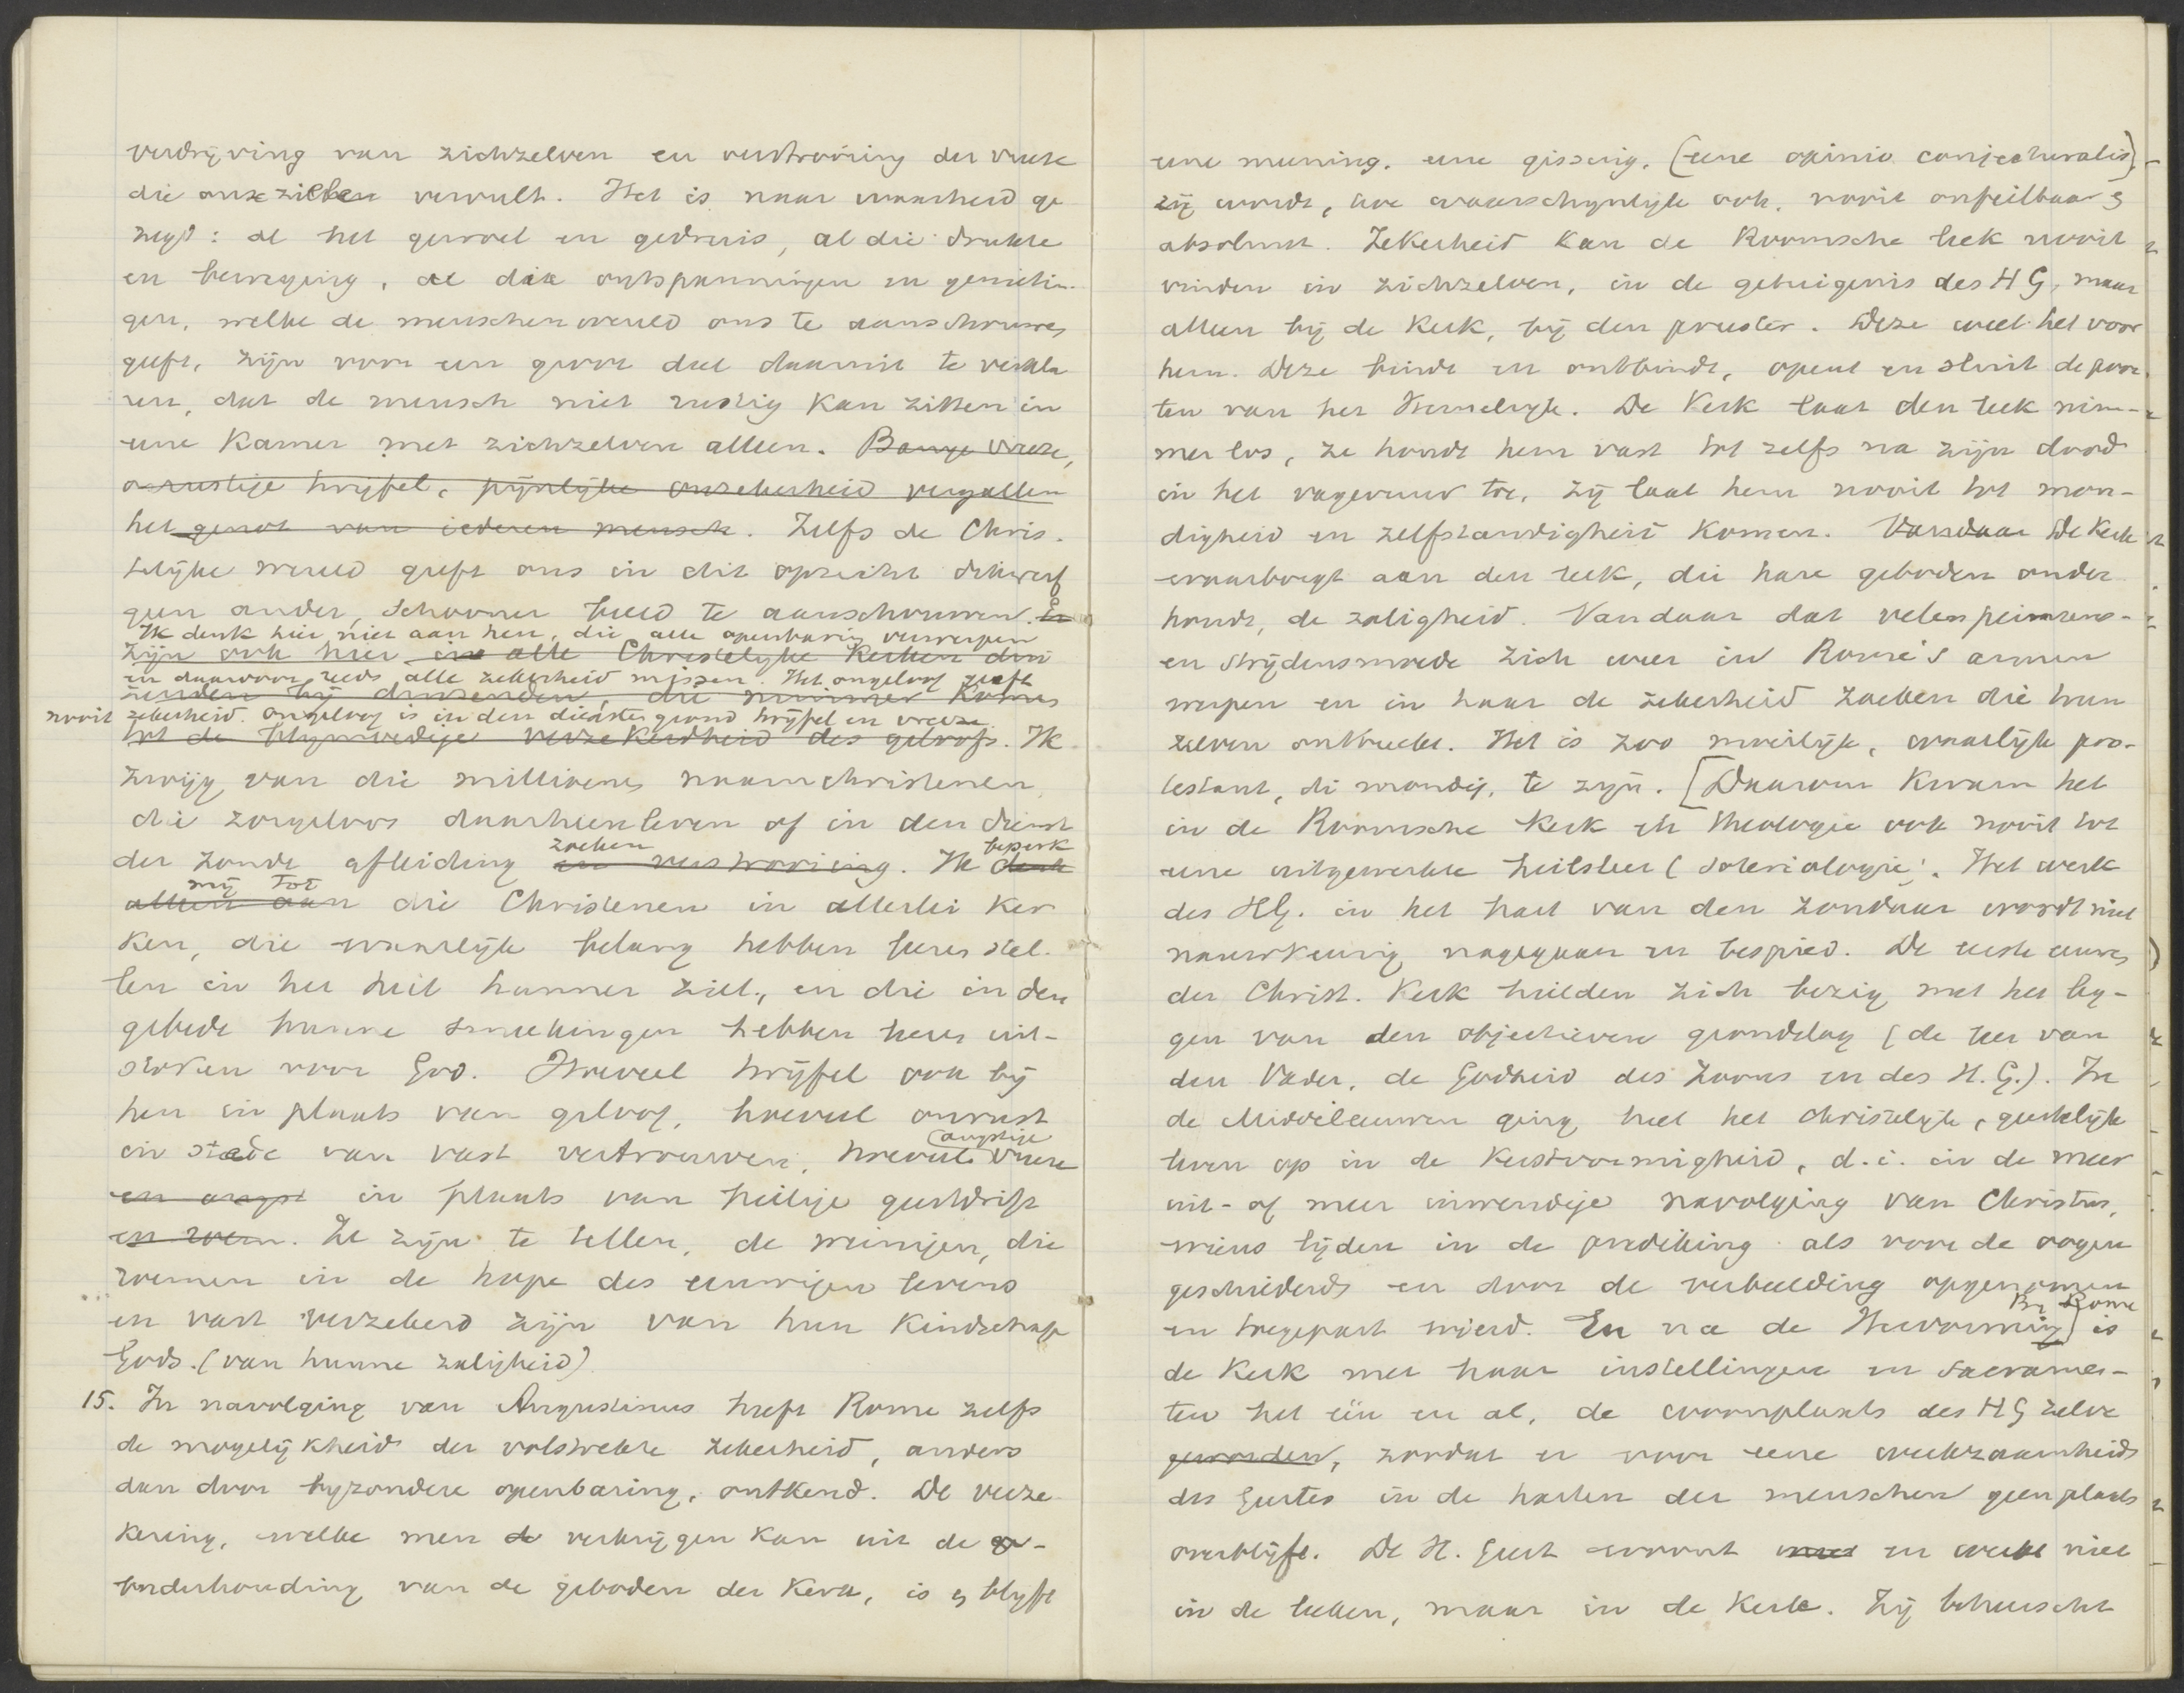 verdrijving van zichzelven en verstrooiing der vreeze
die onze zielen vervult. Het is naar waarheid ge
zegd: al het gewoel en gedruis, al die drukte
en beweging, al die ontspanningen en genietin-
gen, welke de menschenwereld ons te aanschouwen
geeft, zijn voor een groot deel daaruit te verkla
ren, dat de mensch niet rustig kan zitten in
eene kamer met zichzelven alleen. Bange vreeze,
onrustige twijfel, pijnlijke onzekerheid vergallen
het genot van iederen mensch. Zelfs de Chris-
telijke wereld geeft ons in dit opzicht dikwerf
geen ander, schooner beeld te aanschouwen. Er
Ik denk hier niet aan hen, die alle openbaring verwerpen
zijn ook hier in alle Christelijke Kerken den
en daarvoor reeds alle zekerheid missen. Het ongeloof geeft
bij duizenden, die nimmer komen
nooit zekerheid. Ongeloof is in den diepsten grond twijfel en vreeze.
tot de blijmoedige verzekerdheid des geloofs. Ik
zwijg van die millioenen naamchristenen
die zorgeloos daarheenleven of in den dienst
zoeken beperk
der zonde afleiding en verstrooiing. Ik denk
mij tot
alleen aan die Christenen in allerlei Ker
ken, die waarlijk belang hebben leeren stel-
len in het heil hunner ziel, en die in den
gebede hunne smeekingen hebben leeren uit-
storten voor God. Hoeveel twijfel ook bij
hen in plaats van geloof, hoeveel onrust
angstige
in stede van vast vertrouwen, hoeveel vreeze
en angst in plaats van heilige geestdrift
en roem. Ze zijn te tellen, de weinigen, die
roemen in de hope des eeuwigen levens
en vast verzekerd zijn van hun kindschap
Gods. (van hunne zaligheid)
15. In navolging van Augustinus heeft Rome zelfs
de mogelijkheid der volstrekte zekerheid, anders
dan door byzondere openbaring, ontkend. De verze
kering, welke men de verkrijgen kan uit de
onderhouding van de geboden der Kerk, is en blijft
eene meening, eene gissing, (eene opinio conjecturalis),
zij wordt, hoe waarschynlyk ook, nooit onfeilbaar en
absoluut. Zekerheid kan de Roomsche leek nooit
vinden in zichzelven, in de getuigenis des HG, maar
alleen bij de Kerk, bij den priester. Deze weet het voor
hem. Deze bindt en ontbindt, opent en sluit de poor
ten van het Hemelryk. De Kerk laat den leek nim-
mer los, ze houdt hem vast tot zelfs na zijn dood
in het vagevuur toe, zij laat hem nooit tot mon-
digheid en zelfstandigheid komen. Vandaar De Kerk
waarborgt aan den leek, die hare geboden onder
houdt, de zaligheid. Vandaar dat velen peinzens-
en strijdensmoede zich weer in Rome's armen
werpen en in haar de zekerheid zoeken die hun
zelven ontbreekt. Het is zoo moeilijk, waarlijk pro-
testant, di mondig, te zijn. [Daarom kwam het
in de Roomsche Kerk en theologie ook nooit tot
eene uitgewerkte heilsleer (soteriologie). Het werk
des HG. in het hart van den zondaar wordt niet
nauwkeurig nagegaan en bespied. De eerste eeuwen
der Christ. Kerk hielden zich bezig met het leg-
gen van den objectieven grondslag (de leer van
den Vader, de Godheid des Zoons en des H.G.). In
de Middeleeuwen ging heel het christelijk, geestelijk
leven op in de Kerkvormigheid, d.i. in de meer
uit- of meer inwendige navolging van Christus,
wiens lijden in de prediking als voor de oogen
geschilderd en door de verbeelding opgenomen
Bij Rome
en toegepast wierd. En na de Hervorming is
de Kerk met haar instellingen en Sacramen-
ten het één en al, de woonplaats des HG zelve
geworden, zoodat er voor eene werkzaamheid
des Geestes in de harten der menschen geen plaats
overblijft. De H. Geest woont en werkt niet
in de leeken, maar in de Kerk. Zij beheerscht